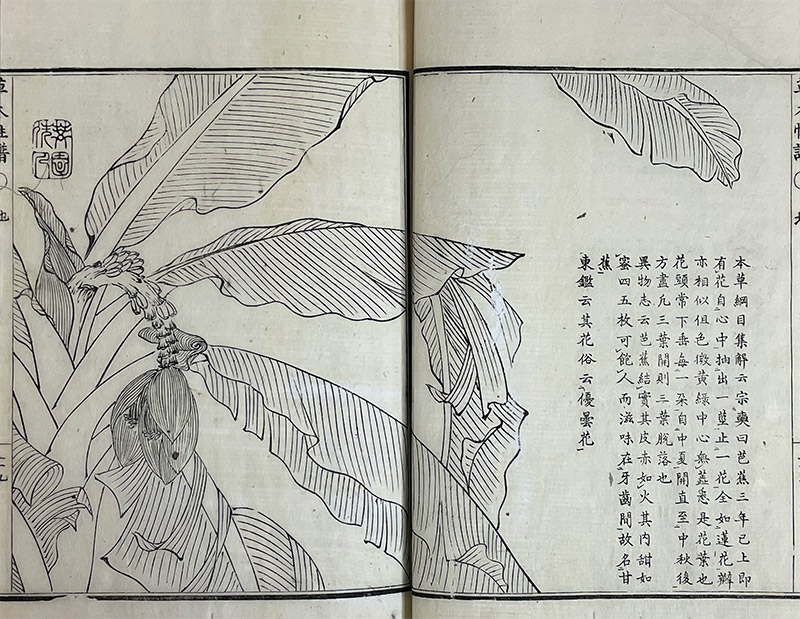 本草綱目集解云宗奭曰芭蕉三年已上即
有花自心中抽出一莖止一花全如蓮花瓣
亦相似但色微黃綠中心無蕊悉是花葉也
花頭常下垂每一朶自中夏開直至中秋後
方盡凡三葉開則三葉脫落也
異物志云芭蕉結實其皮赤如火其肉甜如
蜜四五枚可飽人而滋味在牙齒間故名甘
蕉
東鑑云其花俗云優曇花
草木性譜